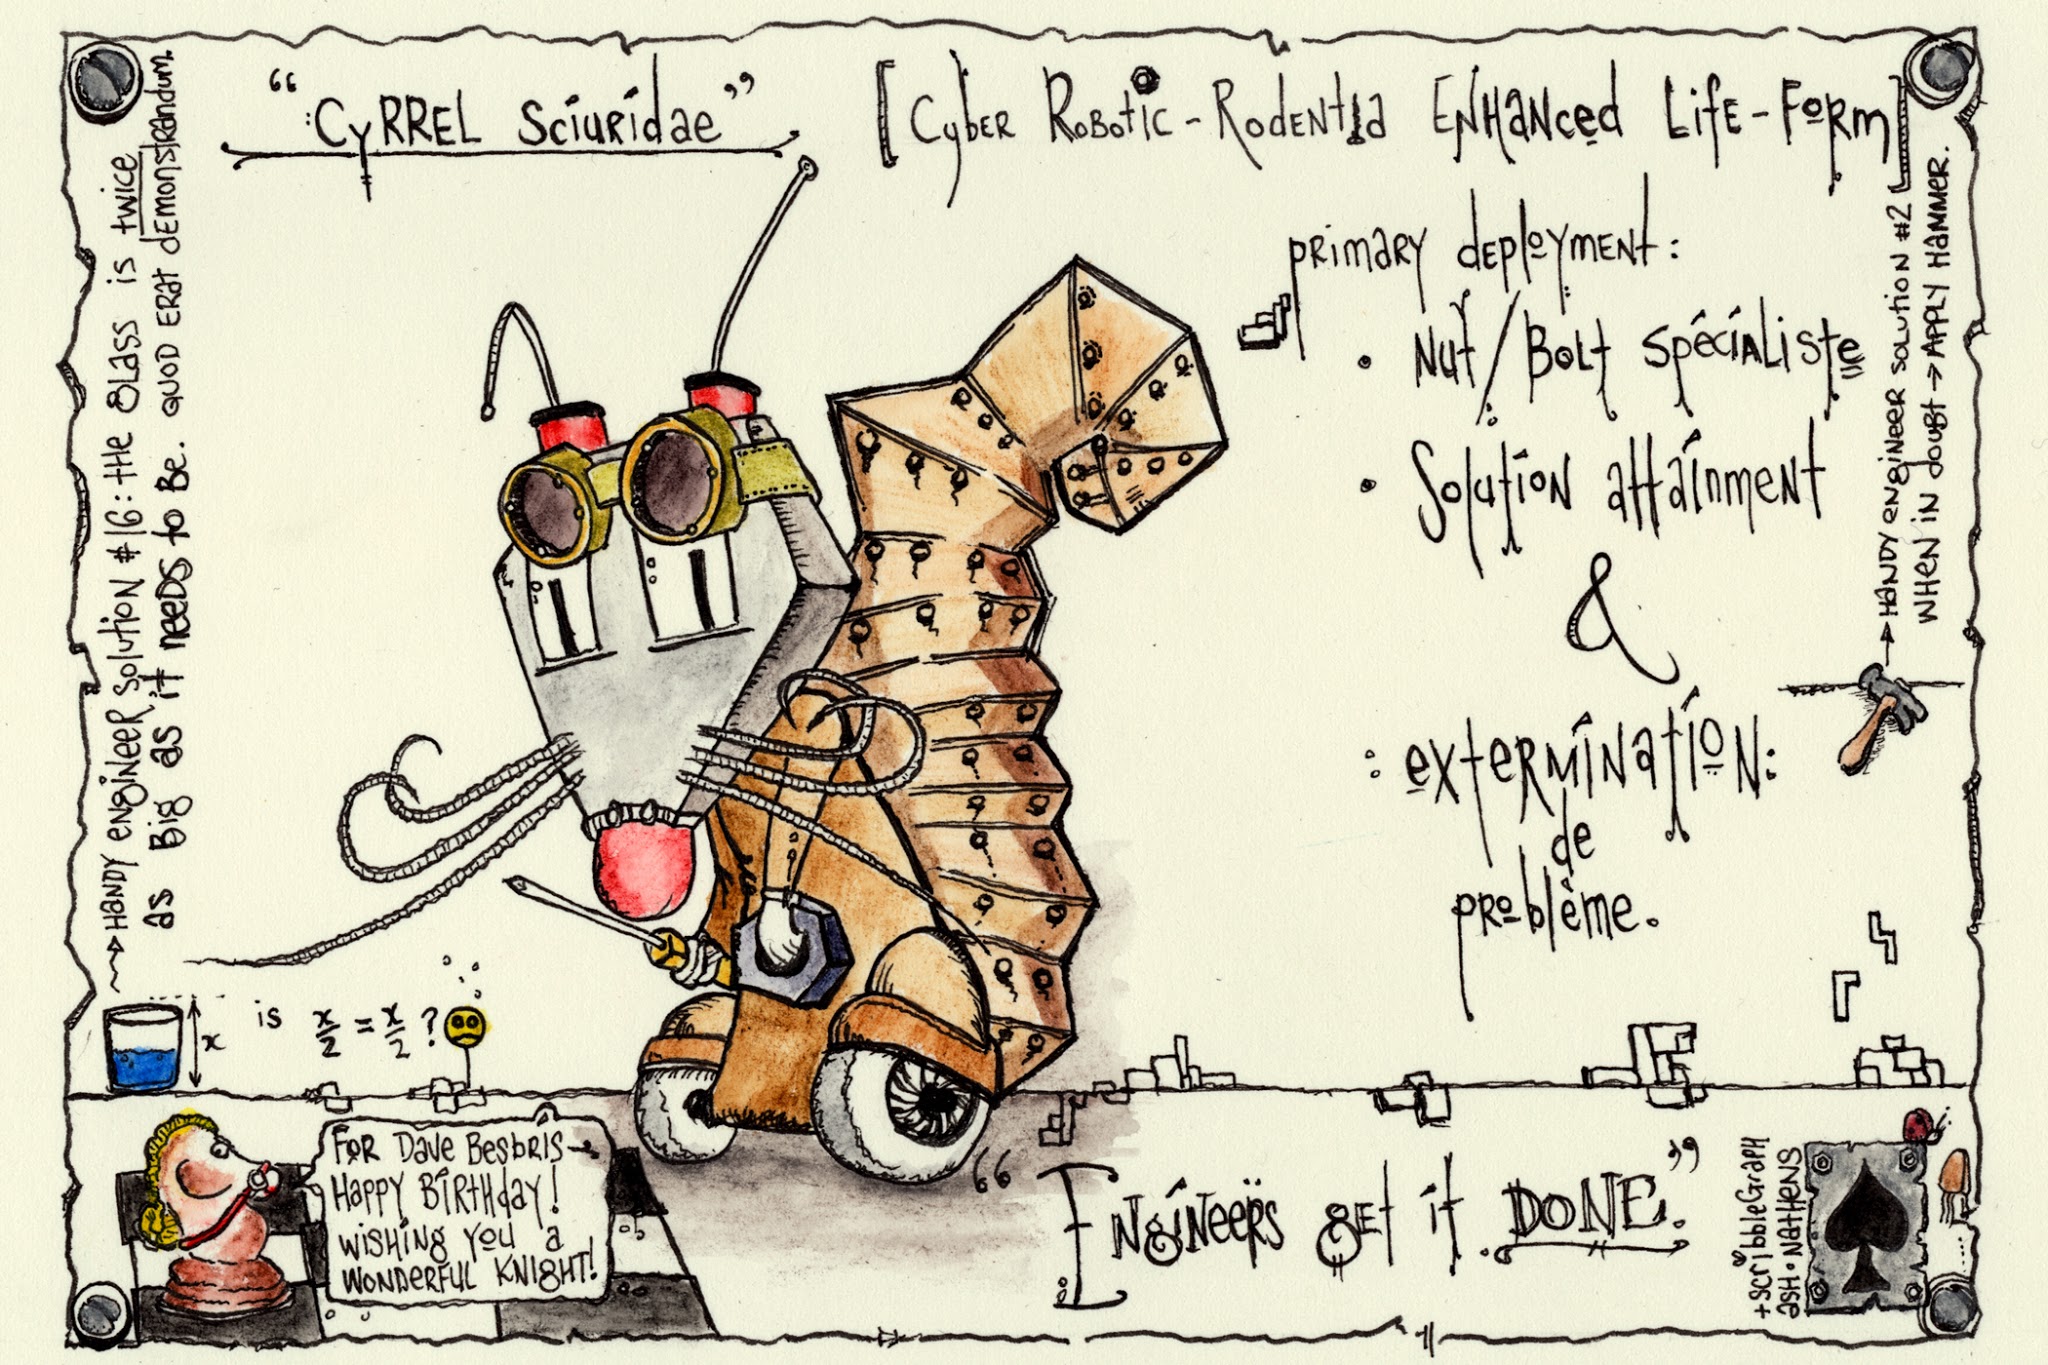 "CYRREL Sciuridae"
[Cyber Robotic-Rodentia Enhanced Life-Form]
primary deployment:
• Nut/Bolt spécialiste
• Solution attainment
&
:extermination:
de
problème.
→ Handy engineer solution #16: the glass is twice
as big as it needs to be. quod erat demonstrandum.
→ Handy engineer solution #2
when in doubt → apply hammer.
x is x/2 = x/2 ?
For Dave Besbris-
Happy Birthday!
wishing you a
wonderful Knight!
"Engineers get it DONE."
+ScribbleGraph
ash•nathens